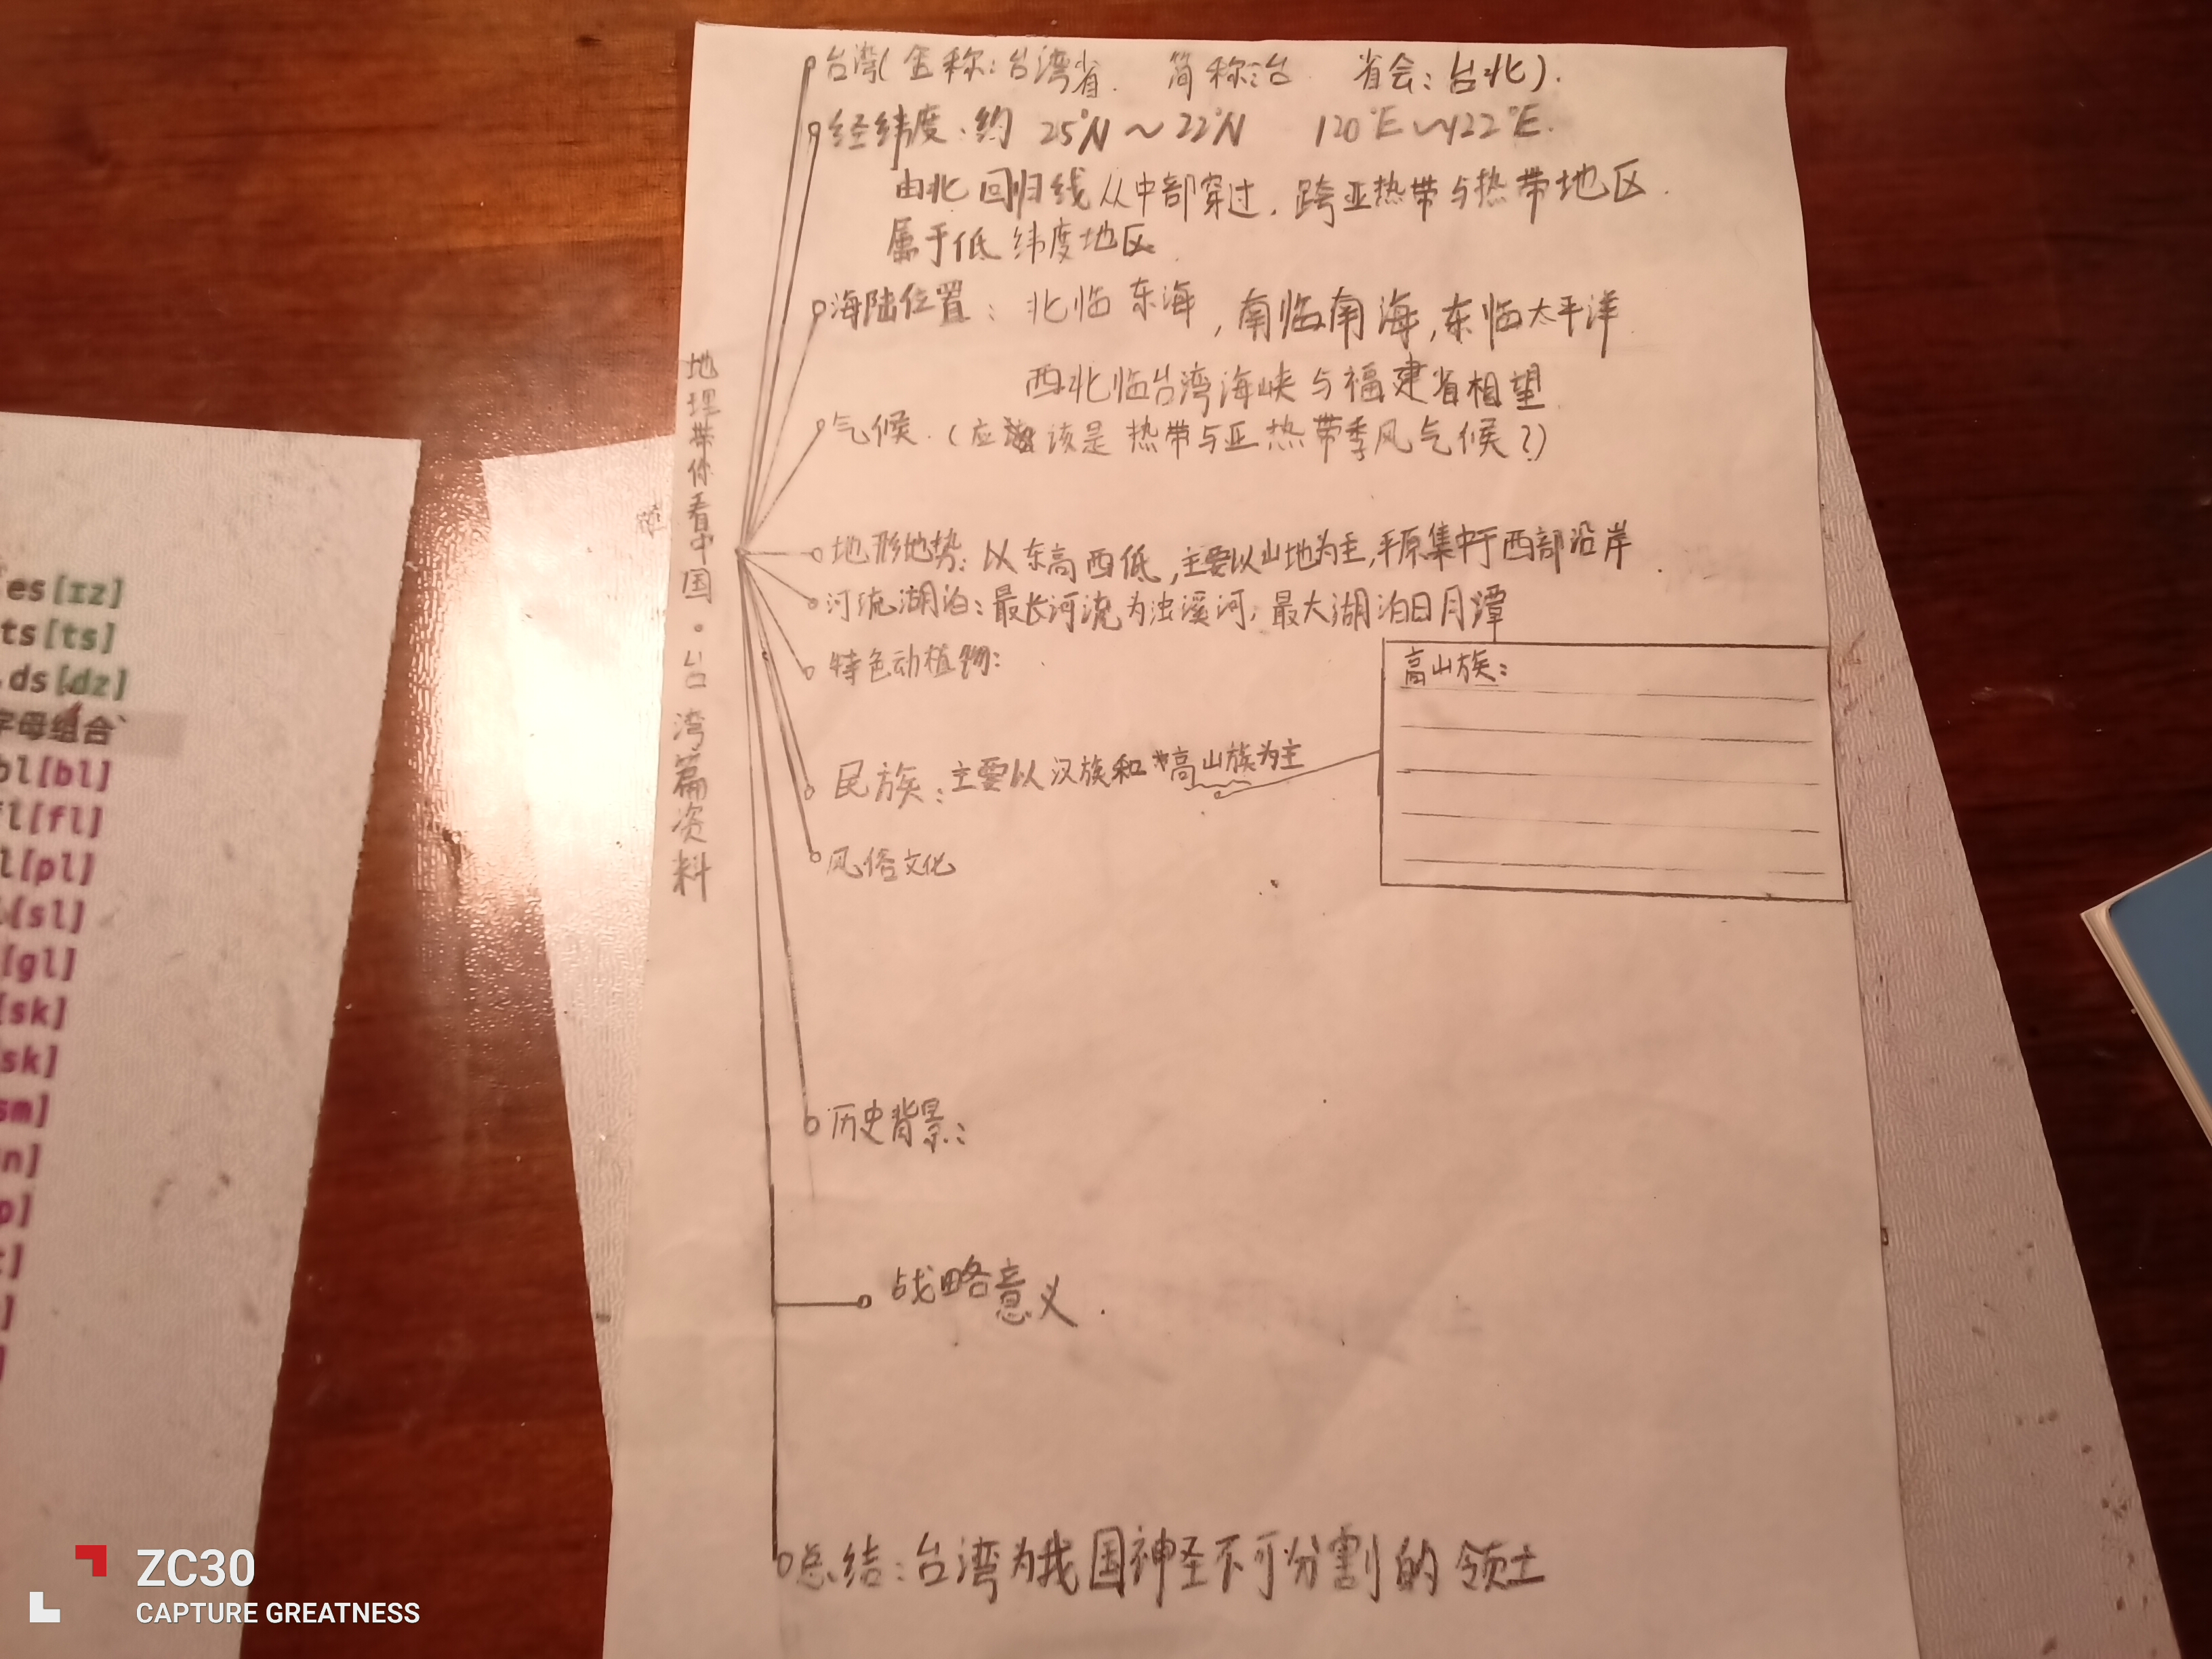 台湾(全称:台湾省. 简称:台. 省会:台北).
经纬度:约 25°N~22°N 120°E~122°E.
由北回归线从中部穿过,跨亚热带与热带地区.
属于低纬度地区.
海陆位置: 北临东海,南临南海,东临太平洋
西北临台湾海峡与福建省相望
气候.(应该是热带与亚热带季风气候?)
地形地势:以东高西低,主要以山地为主,平原集中于西部沿岸.
河流湖泊:最长河流为浊溪河,最大湖泊日月潭
特色动植物:
高山族:
民族:主要以汉族和*高山族为主
风俗文化
历史背景:
战略意义.
总结:台湾为我国神圣不可分割的领土
地理带你看中国·台湾篇资料
es[ɪz]
ts[ts]
ds[dz]
字母组合
bl[bl]
[fl]
l[pl]
[sl]
[gl]
[sk]
sk]
sm]
n]
p]
ZC30
CAPTURE GREATNESS